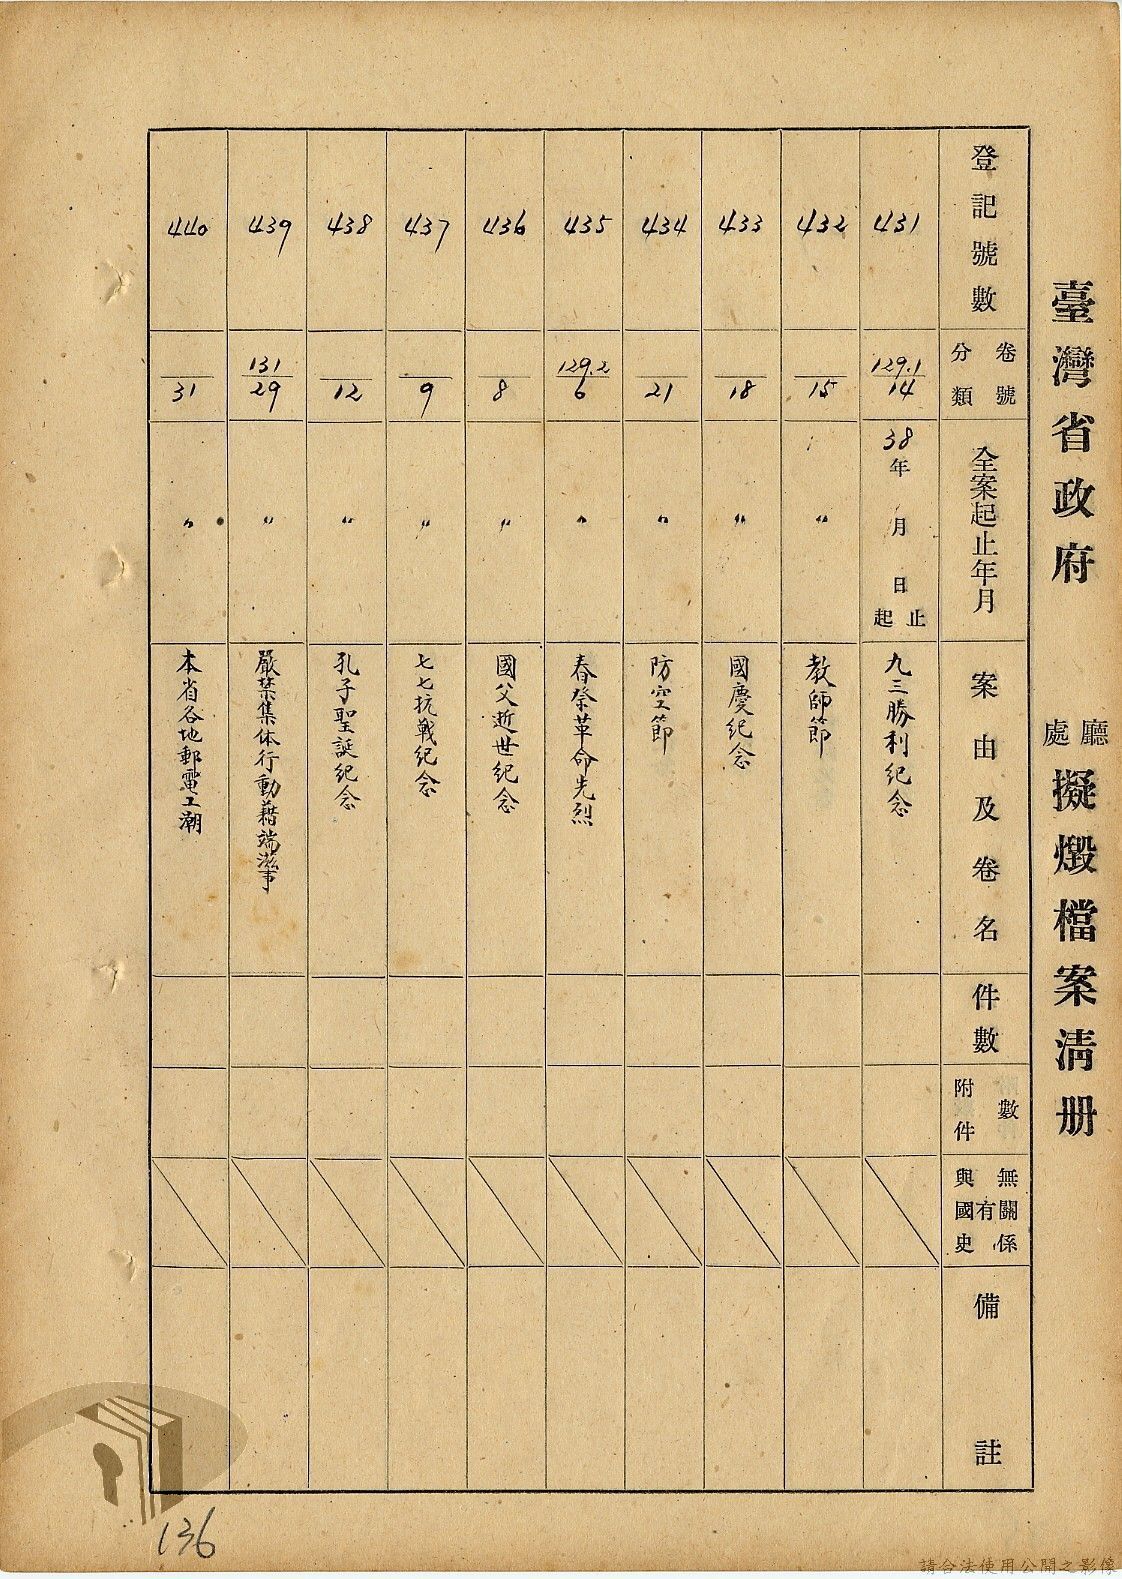 臺灣省政府 廳處 擬燬檔案清册
登記號數
分類 卷號
全案起止年月
案由及卷名
件數
附件 數
與國史 有 無關係
備註
431
129.1
14
38年 月 日 起止
九三勝利紀念
432
15
〃
教師節
433
18
〃
國慶紀念
434
21
〃
防空節
435
129.2
6
〃
春祭革命先烈
436
8
〃
國父逝世紀念
437
9
〃
七七抗戰紀念
438
12
〃
孔子聖誕紀念
439
131
29
〃
嚴禁集体行動藉端滋事
440
31
〃
本省各地郵電工潮
136
請合法使用公開之影像